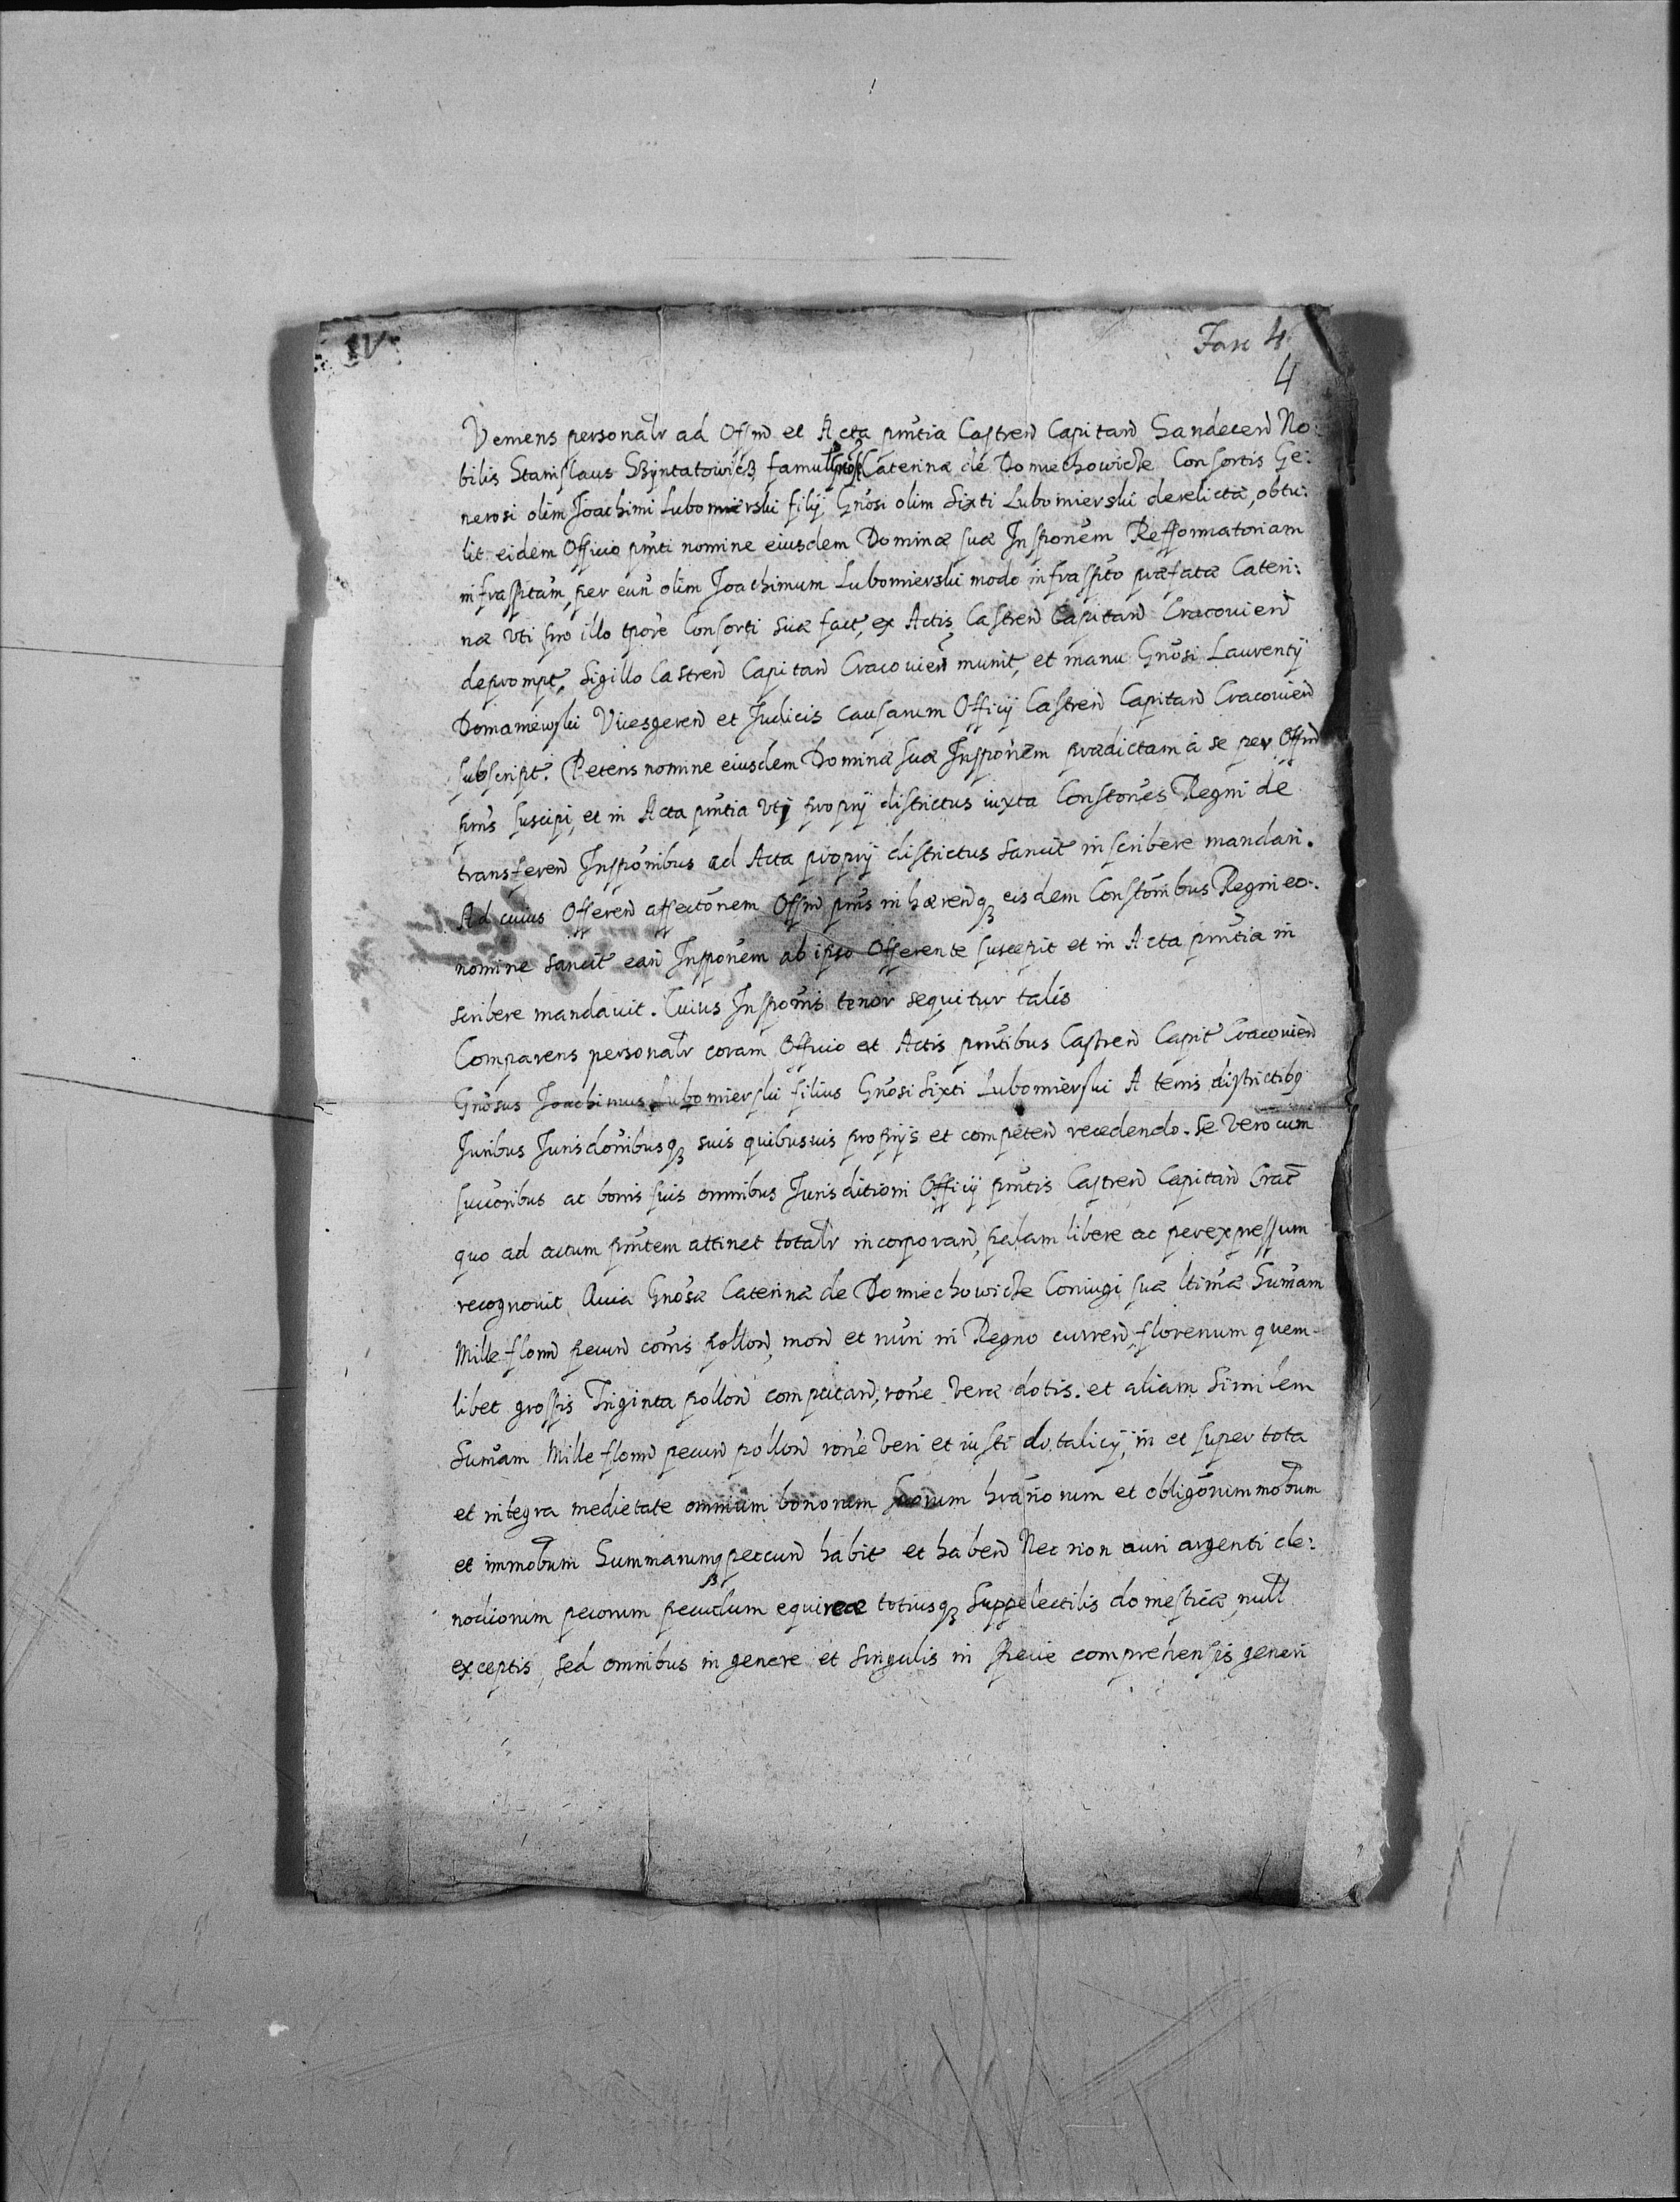 IV
Fasc 4
4
Veniens personalr ad Offm et Acta pntia Castren Capitan Sandecen No:
bilis Stanislaus famul Gnosæ Caterinæ de Domiechowicze Consortis Ge:
nerosi olim Joachimi Lubomierski filij Gnosi olim Sixti Lubomierski derelictæ, obtu:
lit eidem Officio pnti nomine eiusdem Dominæ suæ Insponem Refformatoriam
infrasptam, per eun olim Joachimum Lubomierski modo infraspto præfatæ Cateri:
næ vti pro illo tpore Consorti suæ fact, ex Actis Castren Capitan Cracouien
deprompt, Sigillo Castren Capitan Cracouien munit, et manu Gnosi Laurentij
Domaniewski Vicesgeren et Judicis causarum Officij Castren Capitan Cracouien
subscript. Petens nomine eiusdem Dominæ suæ Insponem prædictam à se per Offm
pns suscipi, et in Acta pntia vti proprij districtus iuxta Constones Regni de
transferen Insponibus ad Acta proprij districtus sancit inscribere mandari.
Ad cuius Offeren affectonem Offm pns inhærenq eisdem Constonibus Regni eo:
nomine sancit ean Insponem ab ipso Offerente suscepit et in Acta pntia in
scribere mandauit. Cuius Insponis tenor sequitur talis
Comparens personalr coram Officio et Actis pntibus Castren Capit Cracouien
Gnosus Joachimus Lubomierski filius Gnosi Sixti Lubomierski A terris districtibq
Juribus Jurisdonibusq suis quibusuis proprijs et competen recedendo. Se vero cum
succoribus ac bonis suis omnibus Jurisditioni Officij pntis Castren Capitan Crac
quo ad actum pntem attinet totalr incorporan, palam libere ac per expressum
recognouit Quia Gnosæ Caterinæ de Domiechowicze Coniugi suæ ltimæ Sumam
Mille flom pecun cois pollon, mon et nuri in Regno curren, florenum quem-
libet grossis Triginta pollon computan, rone veræ dotis. et aliam similem
Sumam Mille flom pecun pollon rone veri et iusti dotalicij, in et super tota
et integra medietate omnium bonorum suorum hranorum et obligorum mobum
et immobum Summarumq peccun habit et haben Nec non auri argenti cle:
nodiorum pecorum pecudum equireæ totiusq Suppelectilis domesticæ, null
exceptis, sed omnibus in genere et singulis in specie comprehensis generi